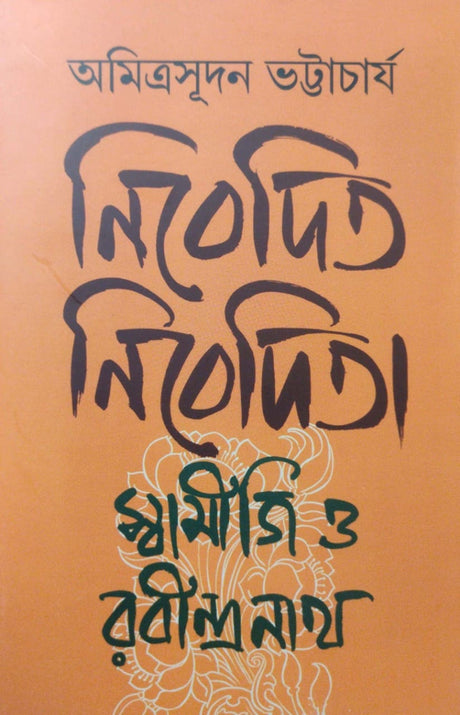 অমিত্রসূদন ভট্টাচার্য
নিবেদিত
নিবেদিতা
স্বামীজি ও
রবীন্দ্রনাথ